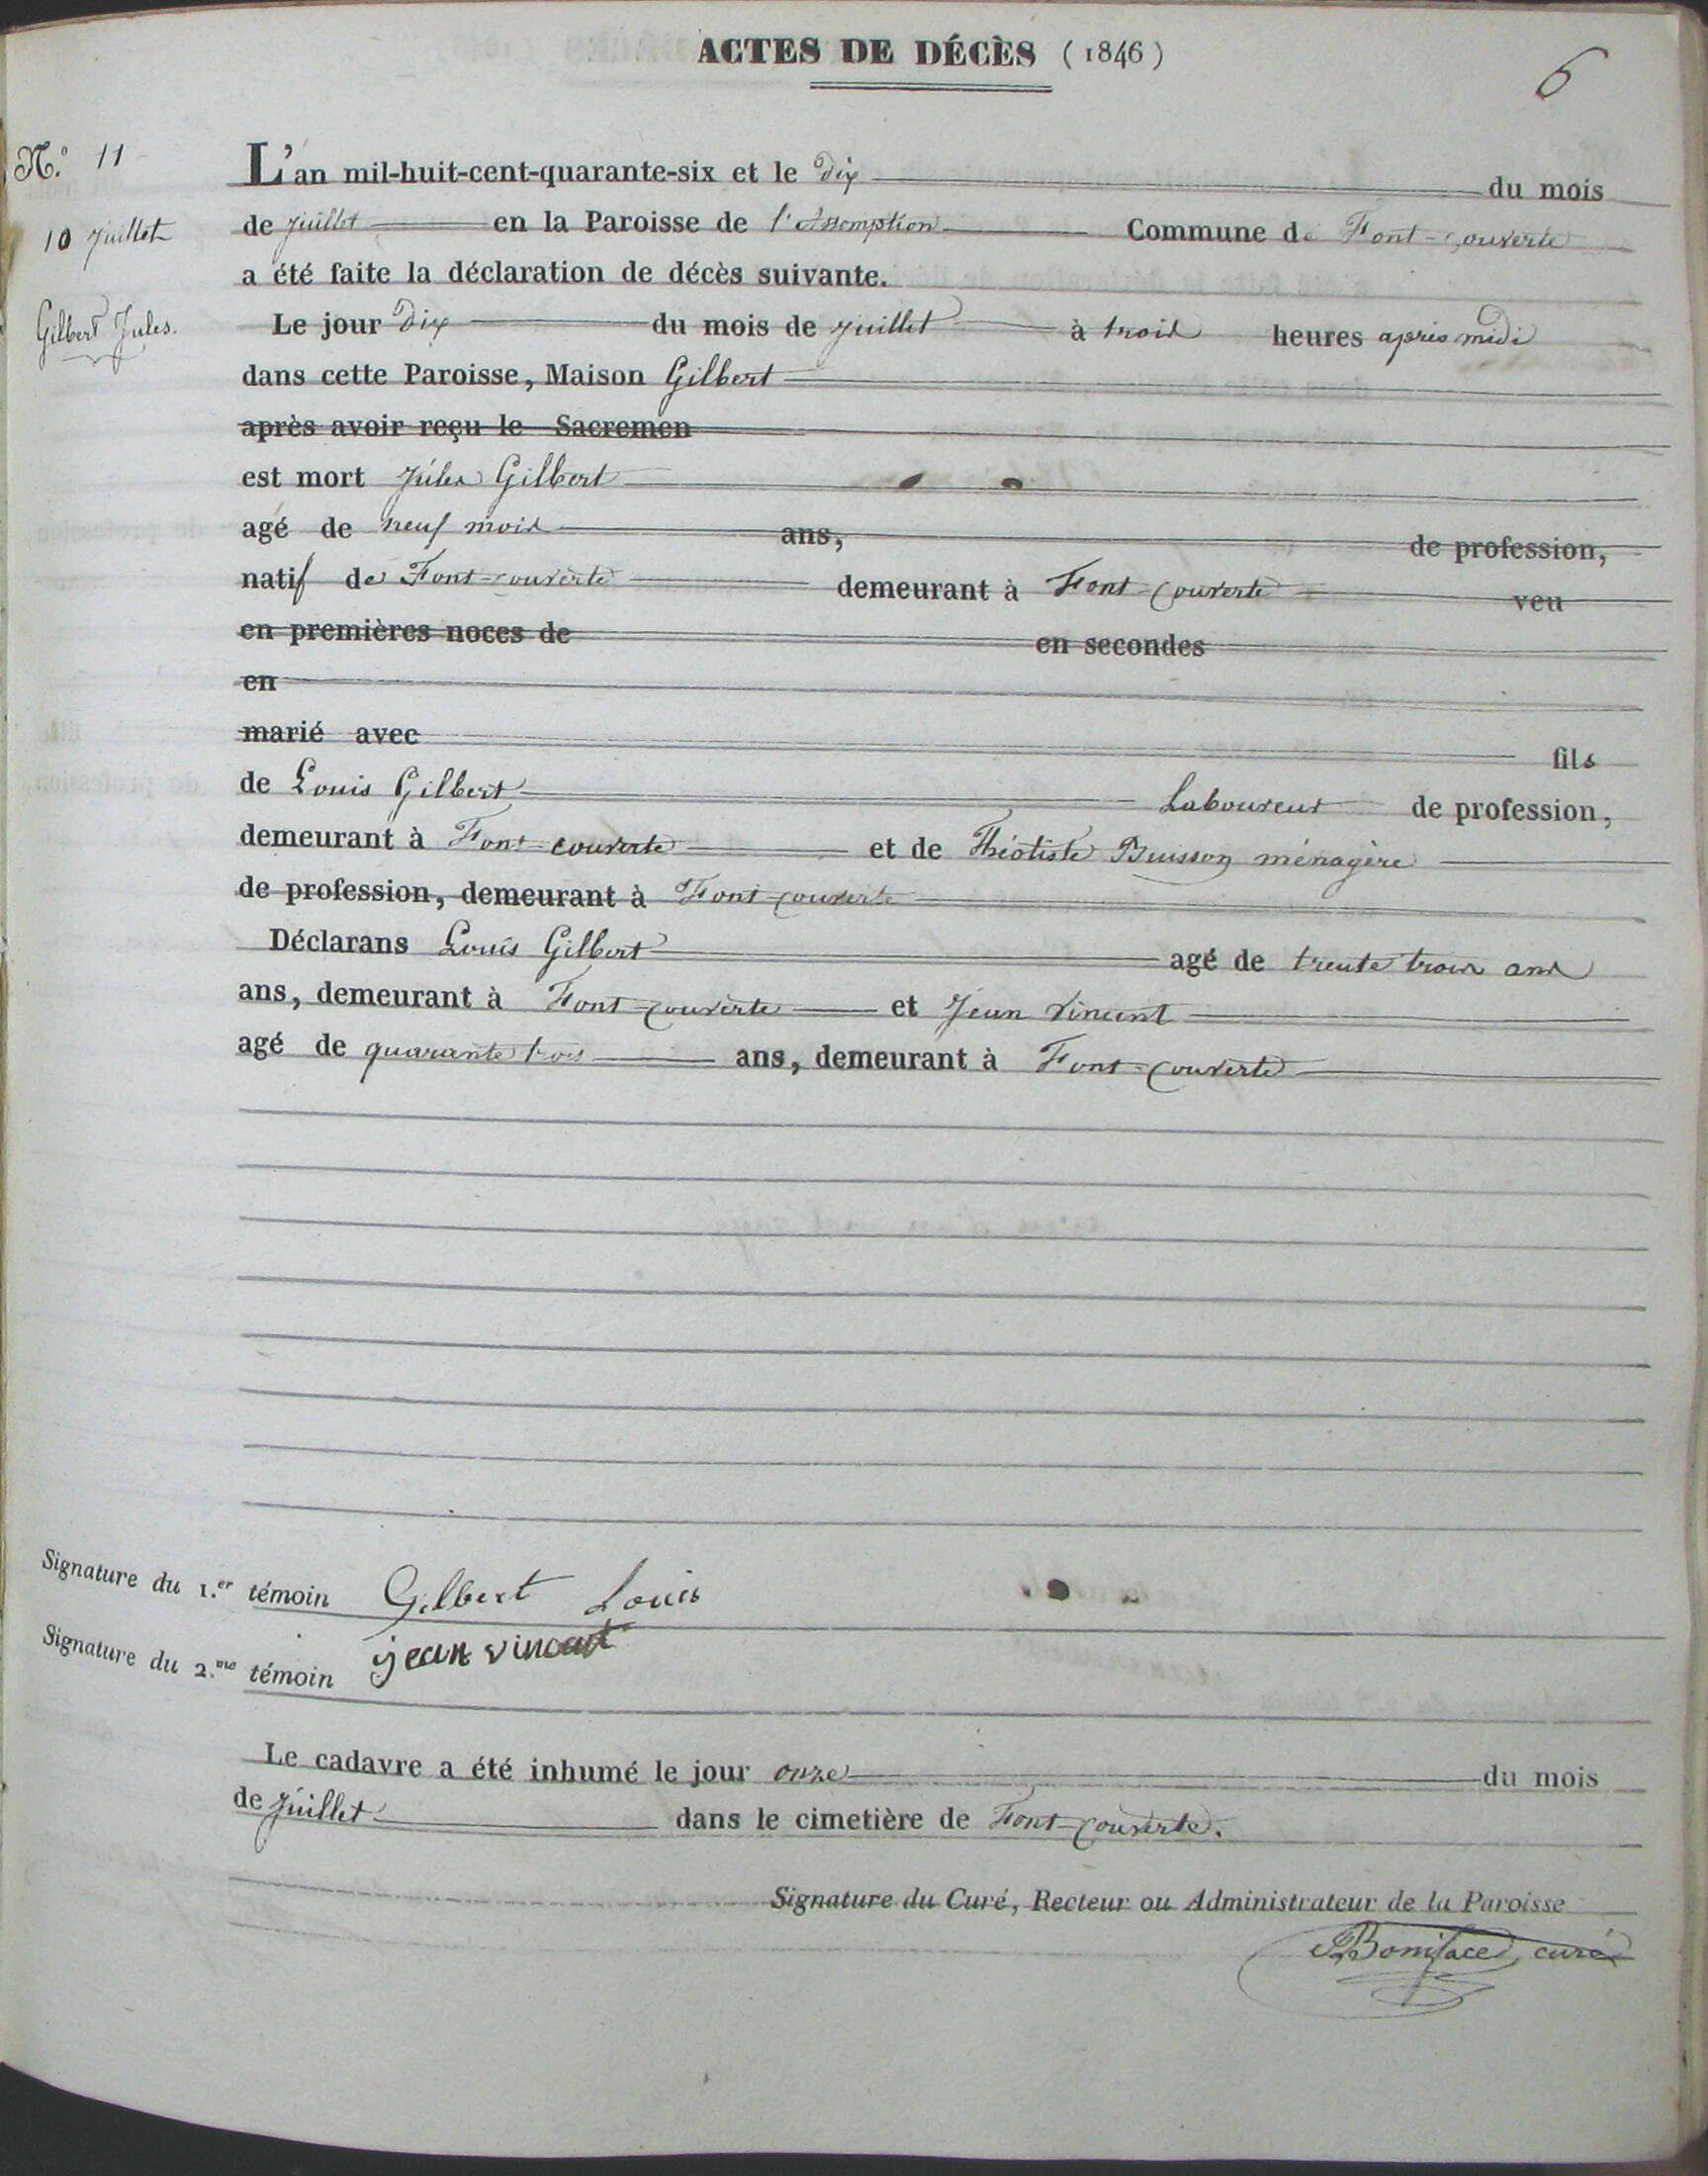 ACTES DE DÉCÈS (1846)
6
N.° 11
10 Juillet
Gilbert Jules.
L'an mil-huit-cent-quarante-six et le dix du mois
de juillet en la Paroisse de l'Assomption Commune de Font-Couverte
a été faite la déclaration de décès suivante.
Le jour dix du mois de juillet à trois heures après midi
dans cette Paroisse, Maison Gilbert
après avoir reçu le Sacremen
est mort Jules Gilbert
agé de neuf mois ans, de profession,
natif de Font-couverte demeurant à Font-Couverte veu
en premières noces de en secondes
en
marié avec fils
de Louis Gilbert Laboureur de profession,
demeurant à Font-couverte et de Théotiste Buisson ménagère
de profession, demeurant à Font-Couverte
Déclarans Louis Gilbert agé de trente trois ans
ans, demeurant à Font-Couverte et Jean Vincent
agé de quarante trois ans, demeurant à Font-Couverte
Signature du 1.er témoin Gilbert Louis
Signature du 2.me témoin jean vincent
Le cadavre a été inhumé le jour onze du mois
de juillet dans le cimetière de Font-Couverte.
Signature du Curé, Recteur ou Administrateur de la Paroisse
Boniface, curé